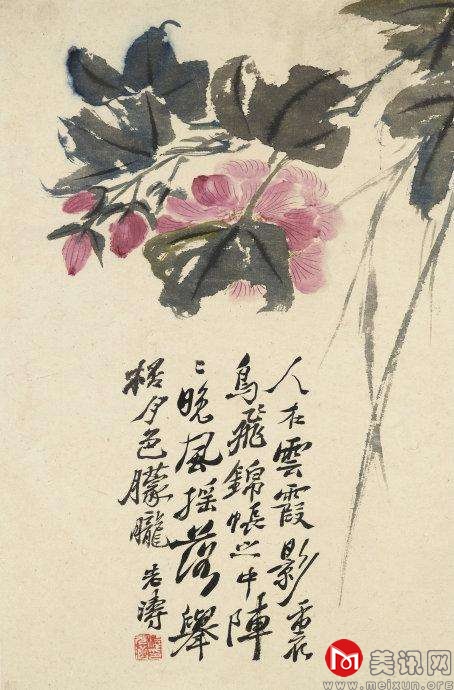 人在雲霞影裏
鳥飛錦帳之中陣
〻晚風搖落舉
色朦朧 濤
美讯网
www.meixun.org